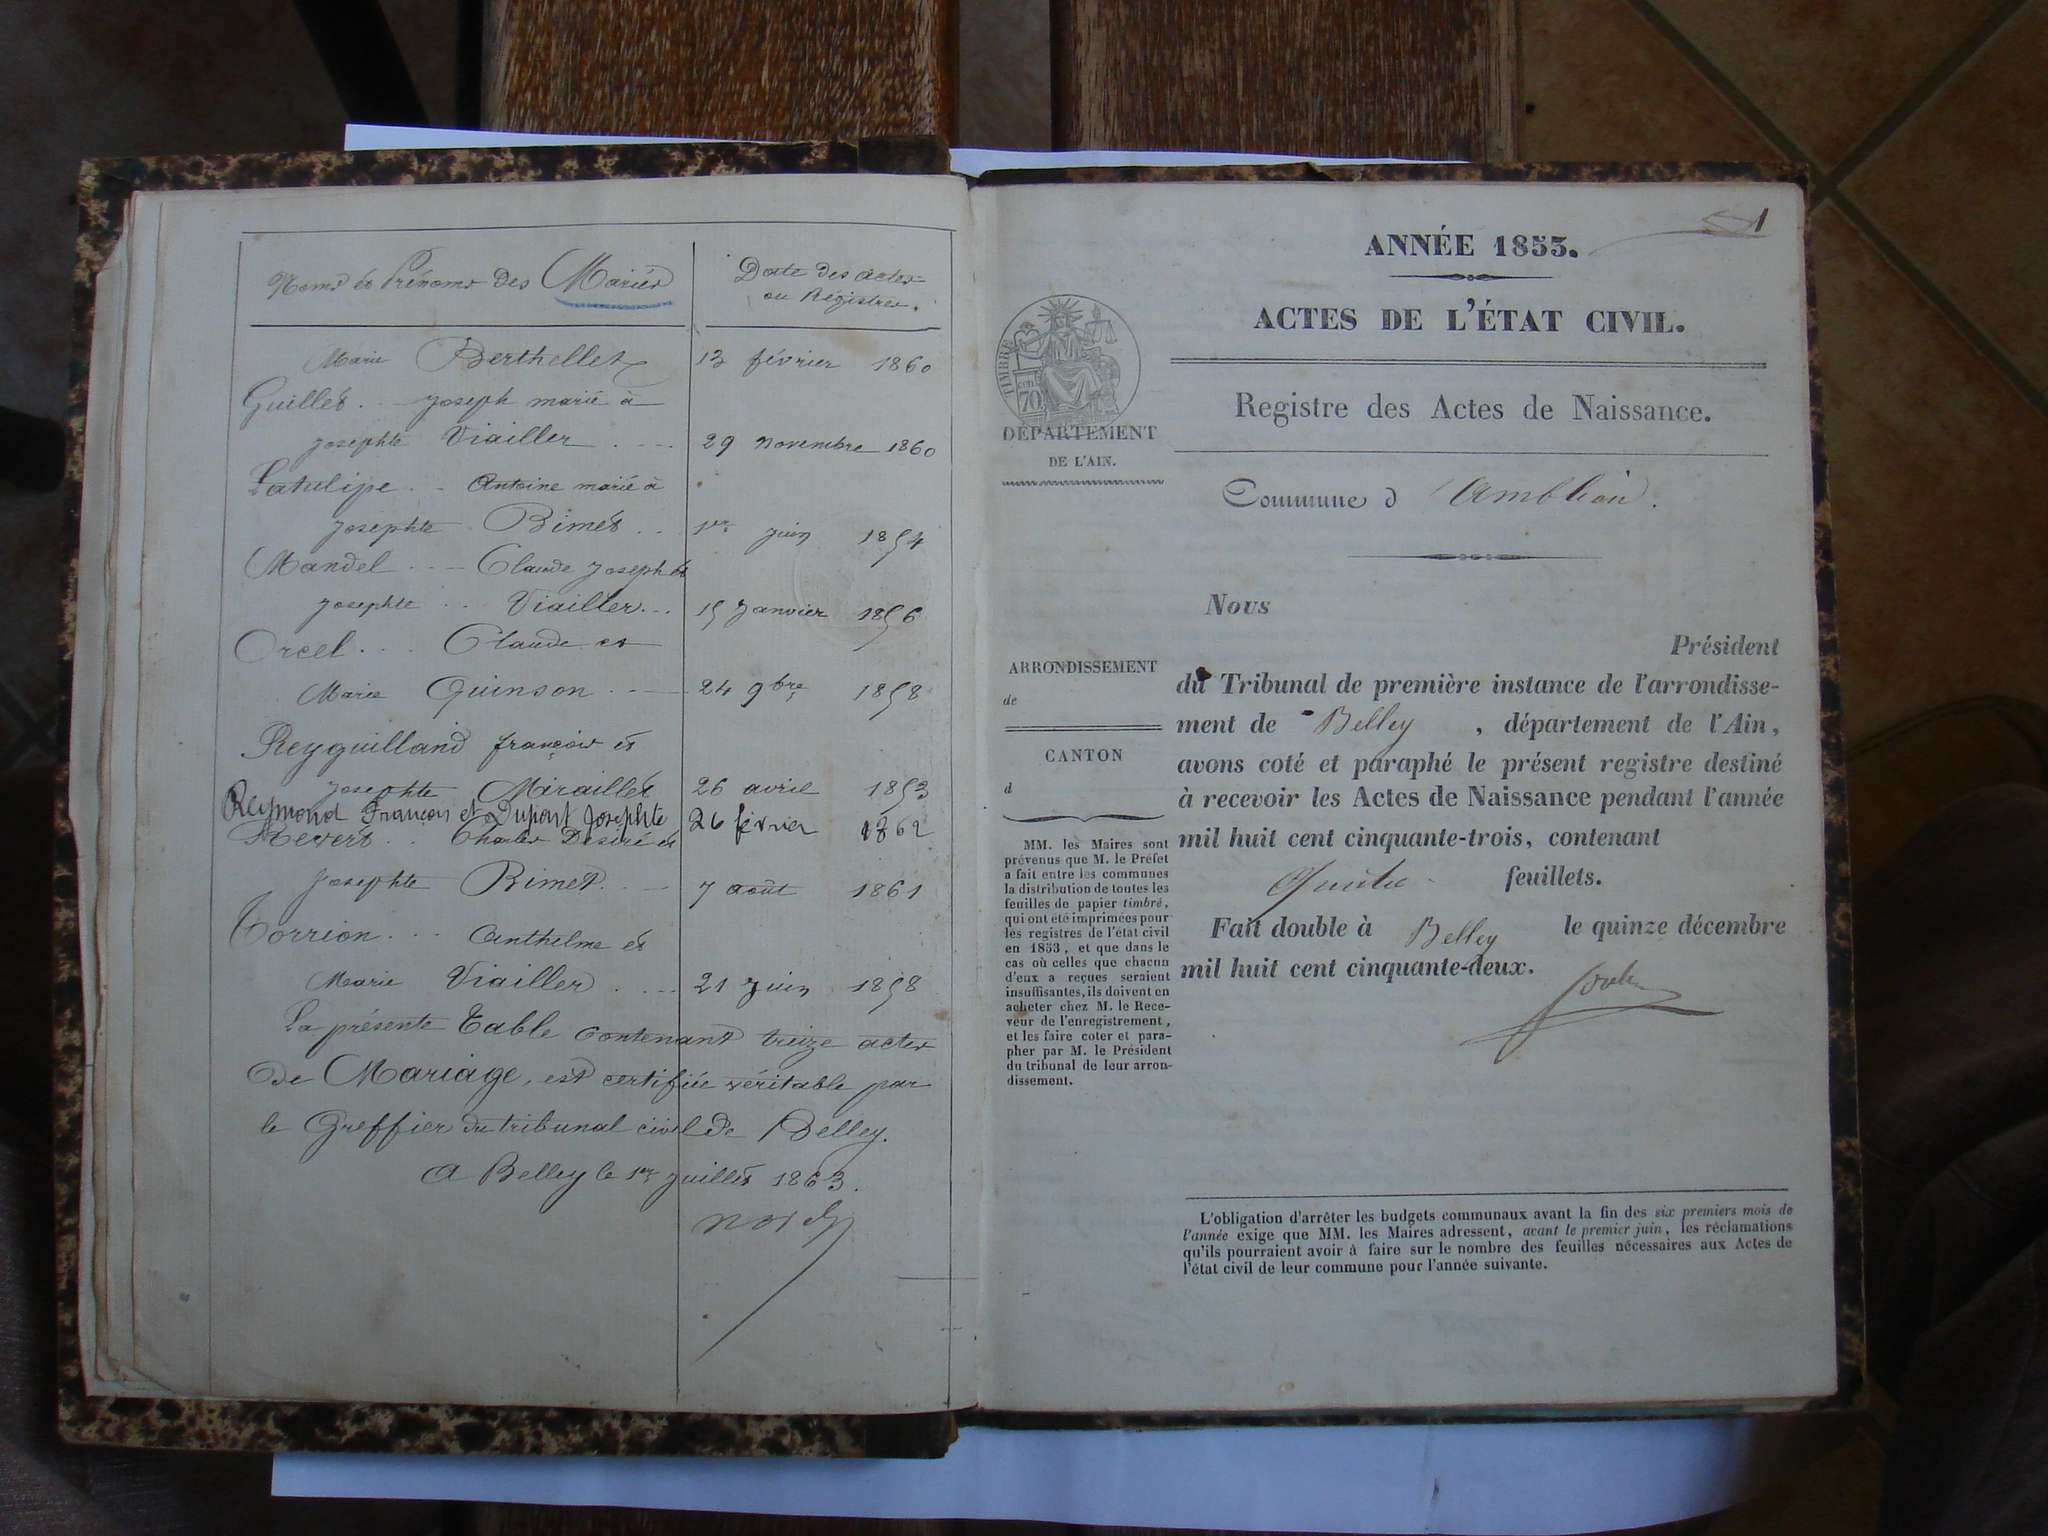 Noms et Prénoms des Mariés
Date des actes
ou Régistres.
Marie Berthellet 13 février 1860
Guillet . . Joseph marié à
Josephte Viailler . . . . 29 novembre 1860
Latulipe . . Antoine marié à
Josephte Bimet . . 1er juin 1854
Mandel . . . Claude Joseph et
Josephte . . Viailler . . . 15 Janvier 1856
Orcel . . . Claude et
Marie Quinson . . . . 24 9bre 1858
Reyguilland françois et
Josephte Miraillet 26 avril 1853
Reymond François et Dupont Josephte 26 février 1862
Revert . . Charles Desiré et
Josephte Bimet . . . 7 août 1861
Torrion . . . Anthelme et
Marie Viailler . . . . 21 Juin 1858
La présente Table contenant treize actes
de Mariage, est certifiée véritable par
le Greffier du tribunal civil de Belley.
A Belley le 1er Juillet 1863.
1
ANNÉE 1853.
ACTES DE L'ÉTAT CIVIL.
Registre des Actes de Naissance.
TIMBRE
70
DÉPARTEMENT
DE L'AIN.
Commune d'Ambléon.
Nous
Président
du Tribunal de première instance de l'arrondisse-
ment de Belley , département de l'Ain,
avons coté et paraphé le présent registre destiné
à recevoir les Actes de Naissance pendant l'année
mil huit cent cinquante-trois, contenant
feuillets.
Fait double à Belley le quinze décembre
mil huit cent cinquante-deux.
ARRONDISSEMENT
de
CANTON
d
MM. les Maires sont
prévenus que M. le Préfet
a fait entre les communes
la distribution de toutes les
feuilles de papier timbré,
qui ont été imprimées pour
les registres de l'état civil
en 1853, et que dans le
cas où celles que chacun
d'eux a reçues seraient
insuffisantes, ils doivent en
acheter chez M. le Rece-
veur de l'enregistrement,
et les faire coter et para-
pher par M. le Président
du tribunal de leur arron-
dissement.
L'obligation d'arrêter les budgets communaux avant la fin des six premiers mois de
l'année exige que MM. les Maires adressent, avant le premier juin, les réclamations
qu'ils pourraient avoir à faire sur le nombre des feuilles nécessaires aux Actes de
l'état civil de leur commune pour l'année suivante.